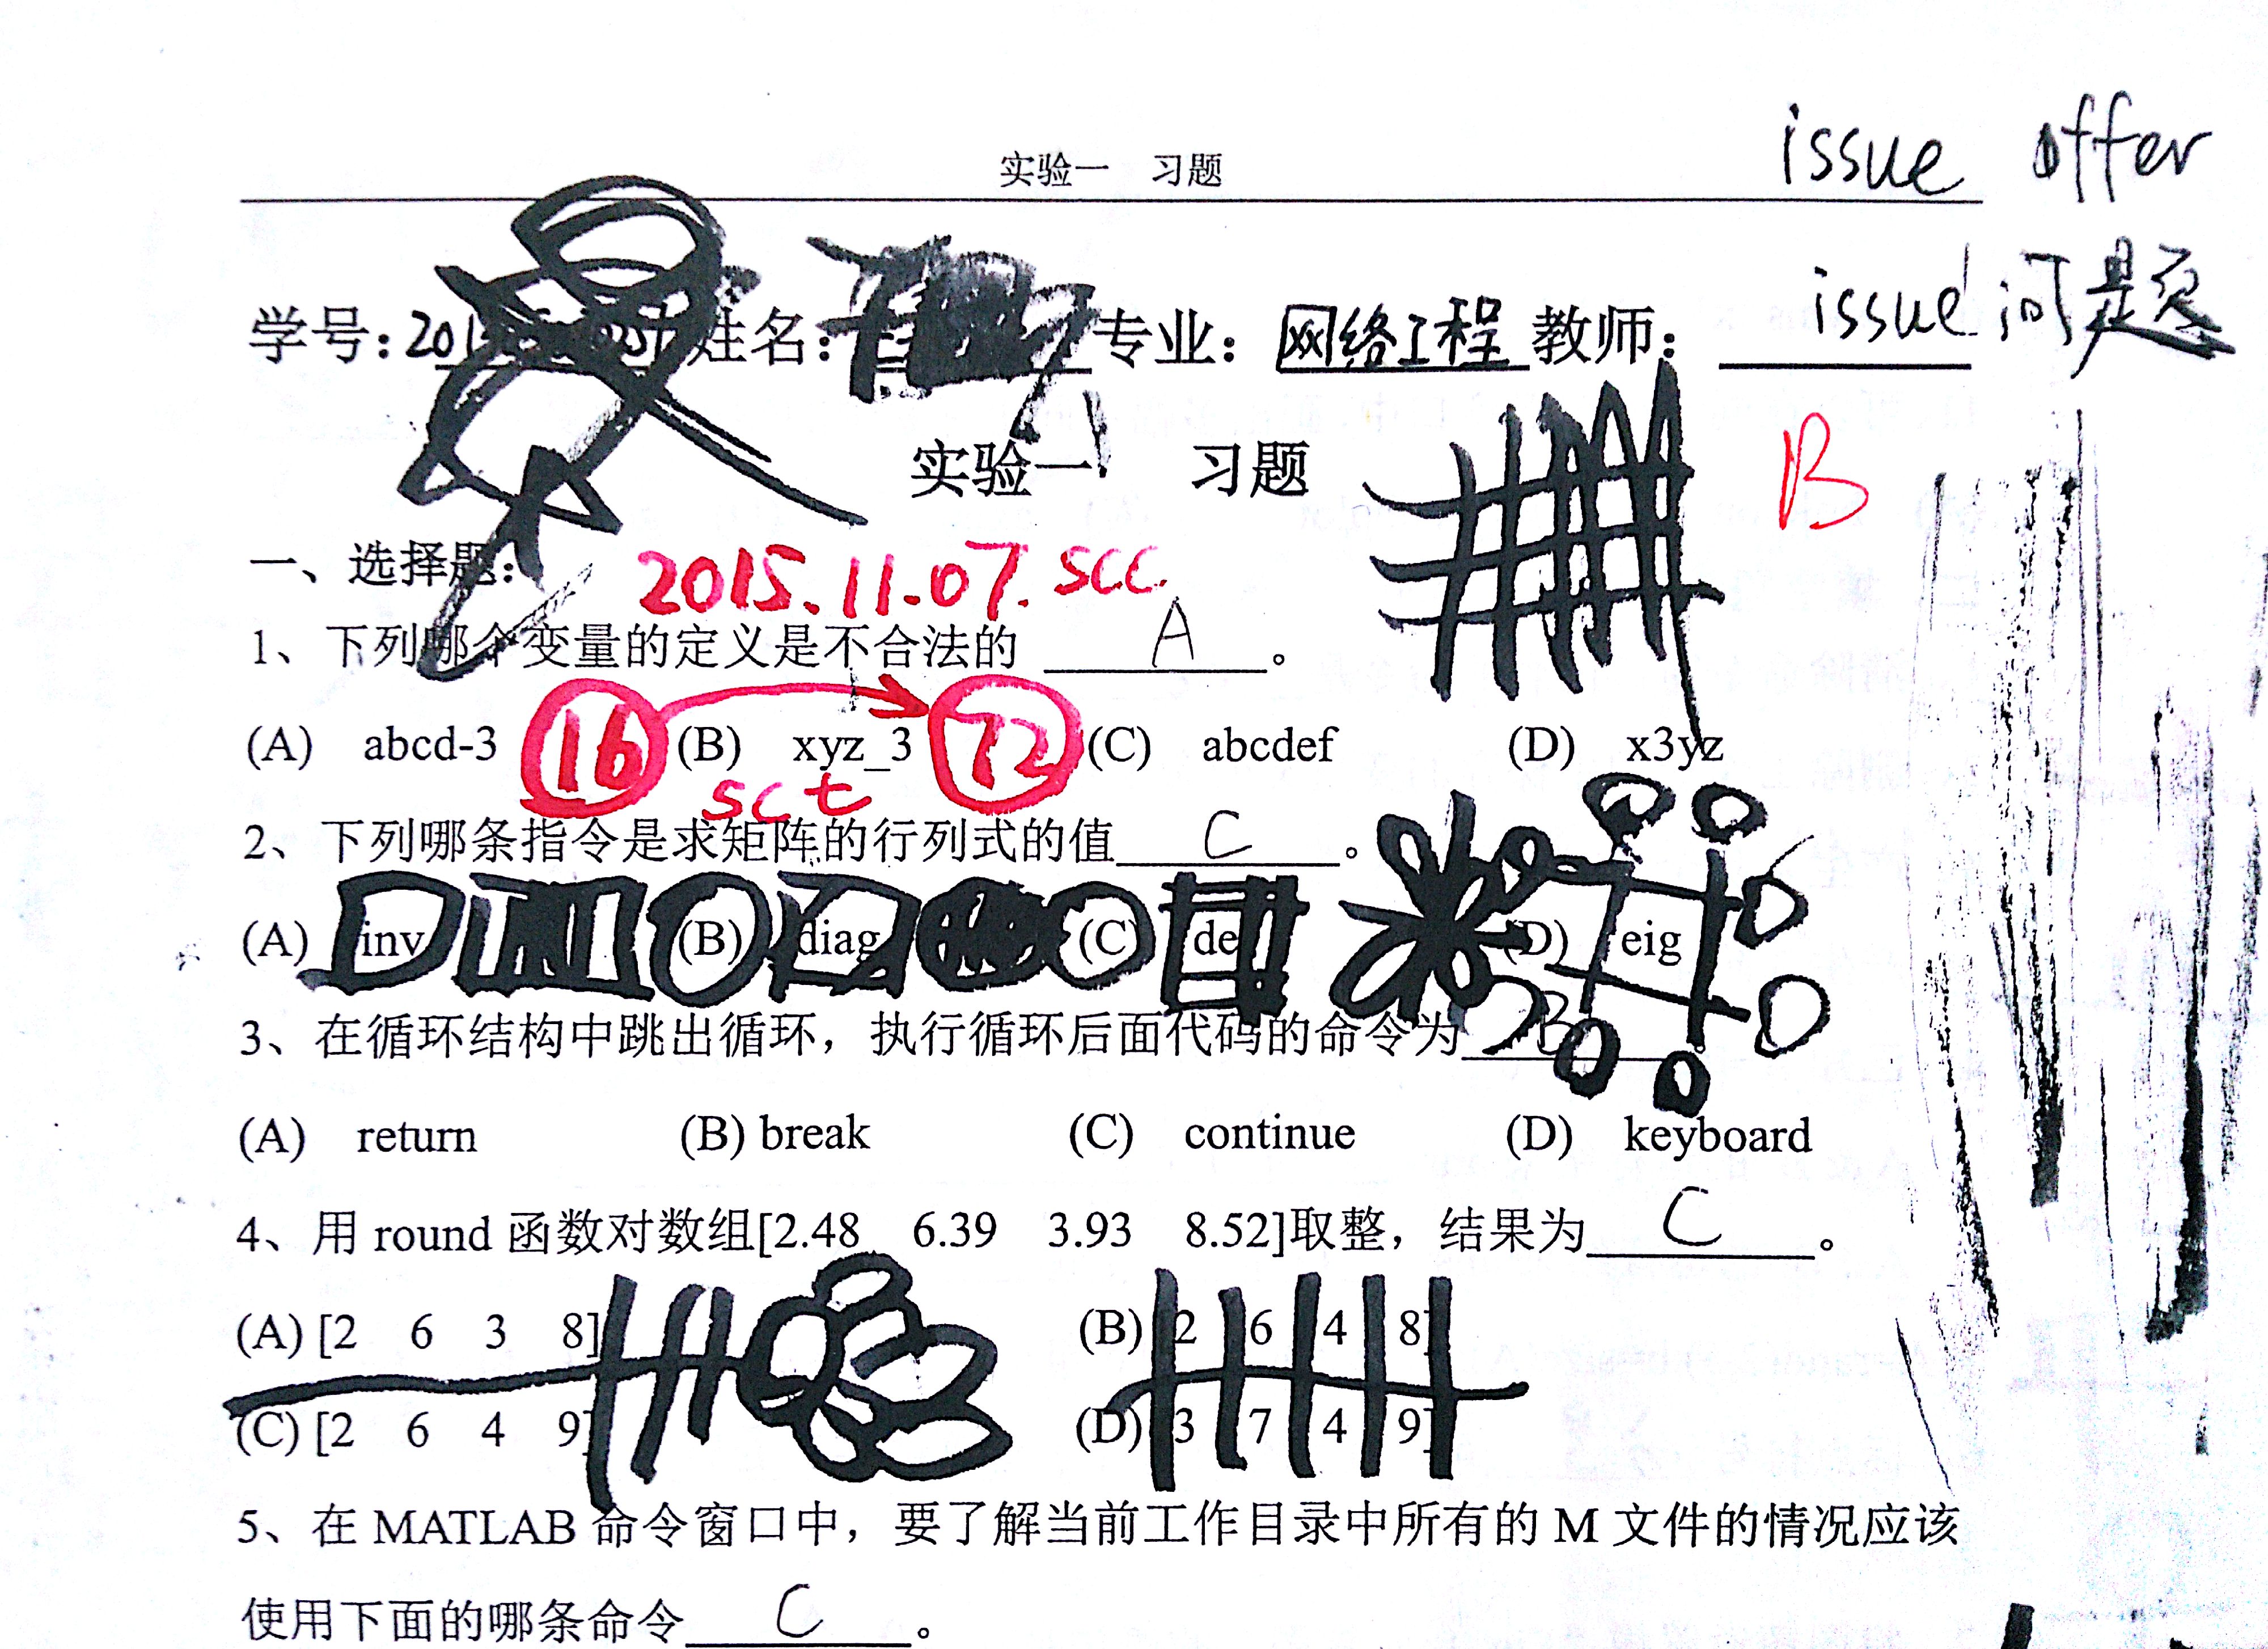 issue offer
实验一 习题
issue 问题
学号: 20 姓名: 专业: 网络工程 教师:
实验一 习题
B
一、选择题:
2015.11.07. scc
1、下列哪个变量的定义是不合法的 A 。
(A) abcd-3 16 (B) xyz_3 72 (C) abcdef (D) x3yz
sct
2、下列哪条指令是求矩阵的行列式的值 C 。
(A) inv (B) diag (C) de (D) eig
3、在循环结构中跳出循环，执行循环后面代码的命令为 B 。
(A) return (B) break (C) continue (D) keyboard
4、用 round 函数对数组[2.48 6.39 3.93 8.52]取整，结果为 C 。
(A) [2 6 3 8] (B) 2 6 4 8]
(C) [2 6 4 9] (D) 3 7 4 9]
5、在 MATLAB 命令窗口中，要了解当前工作目录中所有的 M 文件的情况应该
使用下面的哪条命令 C 。